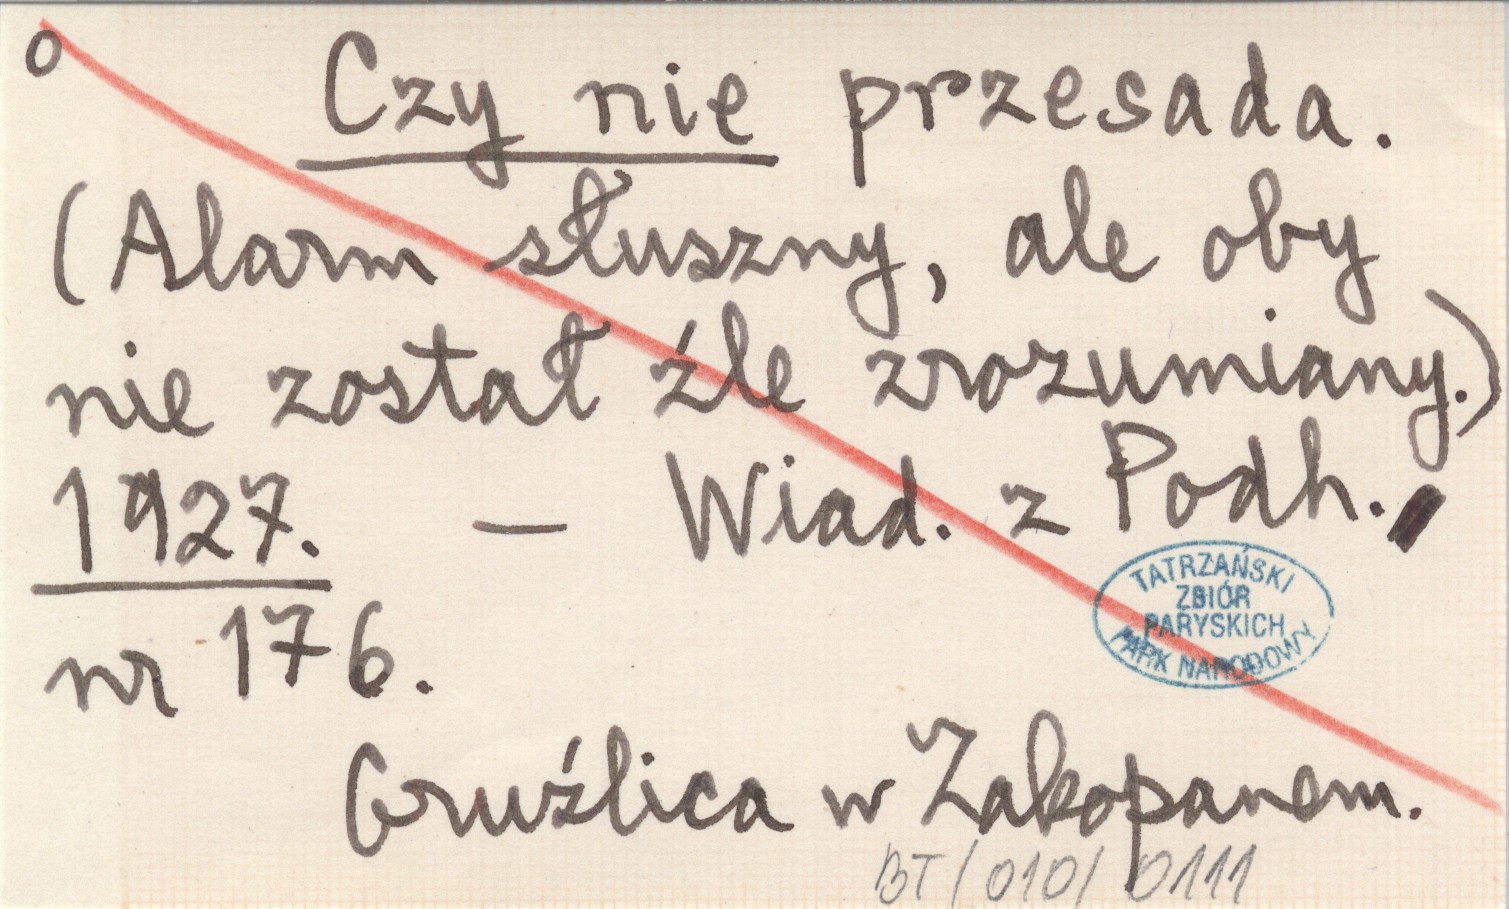 o Czy nie przesada.
(Alarm słuszny, ale oby
nie został źle zrozumiany.)
1927. — Wiad. z Podh.
nr 176.
TATRZAŃSKI
ZBIÓR
PARYSKICH
PARK NARODOWY
Gruźlica w Zakopanem.
BT/010/0111